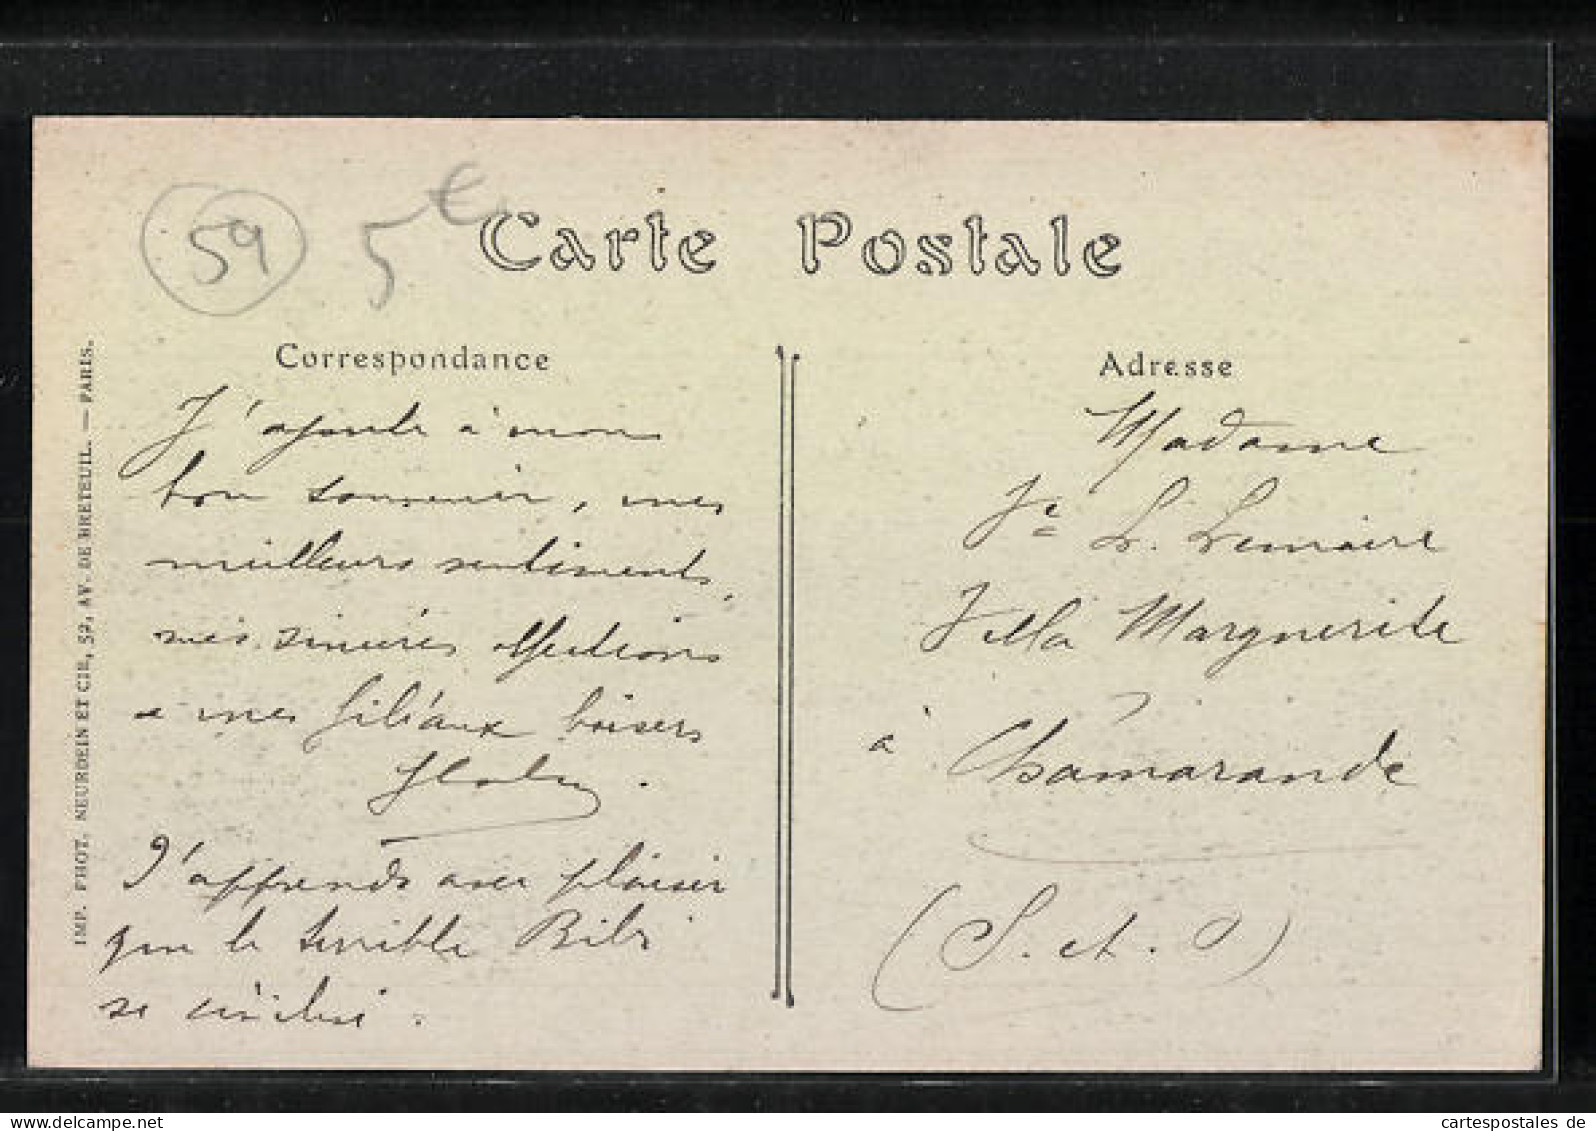 59
5€
Carte Postale
Correspondance
J'ajoute à mon
bon souvenir, mes
meilleurs sentiments,
mes sincères affections
& mes filiaux baisers
J'apprends avec plaisir
que le terrible Bibi
se civilise.
Adresse
Madame
Ve L. Lemaire
Villa Marguerite
à Chamarande
(S. et. O)
IMP. PHOT. NEURDEIN ET CIE, 52, AV. DE BRETEUIL. — PARIS.
cartespostales de